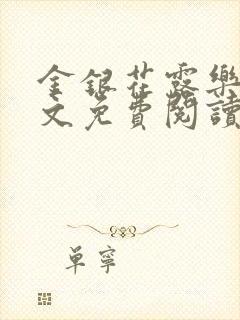 金銀花露樂
文免費閱讀
單寧